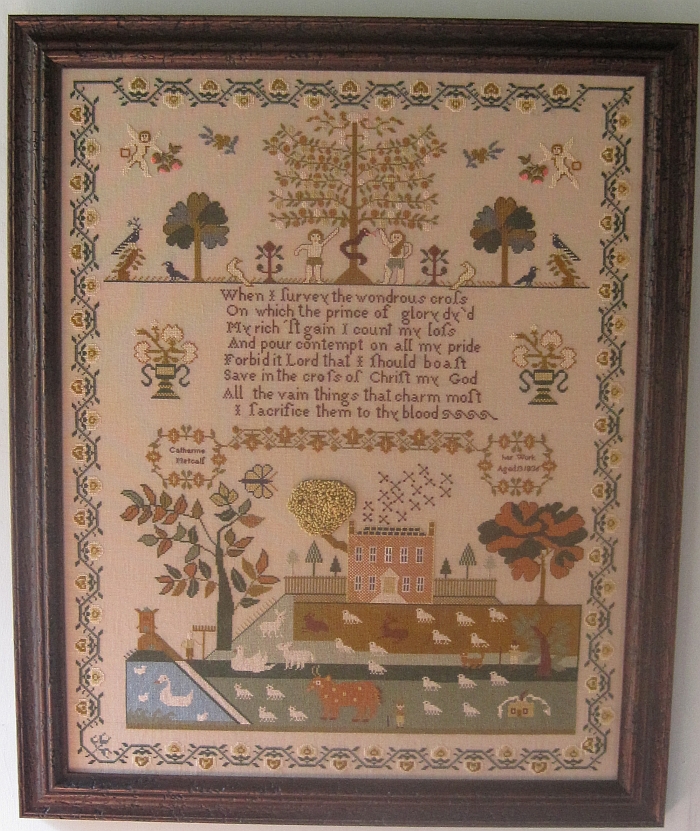 When I ſurvey the wondrous croſs
On which the prince of glory dy'd
My rich'ſt gain I count my loſs
And pour contempt on all my pride
Forbid it Lord that I ſhould boaſt
Save in the croſs of Chriſt my God
All the vain things that charm moſt
I ſacrifice them to thy blood
Catharine
Metcalf
her Work
Aged